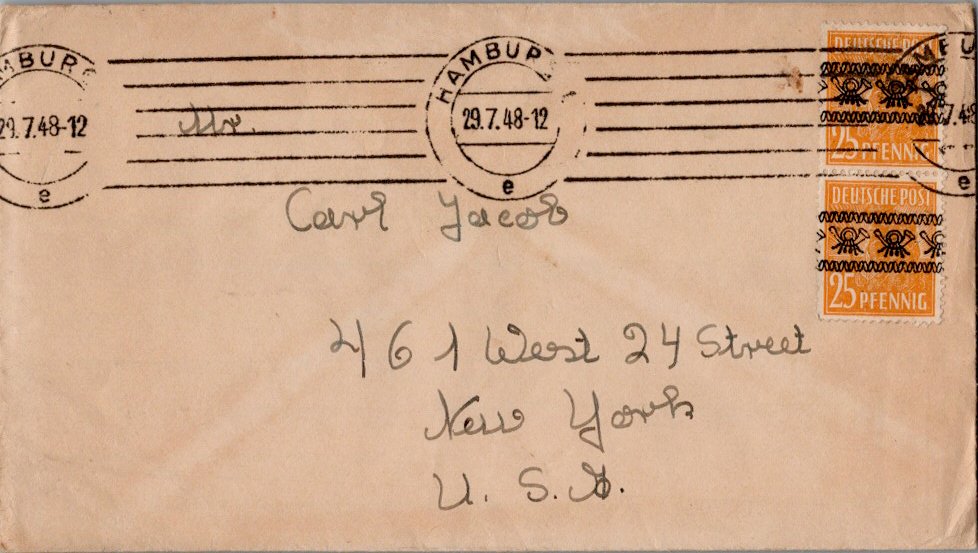 HAMBURG
29.7.48-12
e
HAMBURG
29.7.48-12
e
DEUTSCHE POST
25 PFENNIG
DEUTSCHE POST
25 PFENNIG
Mr.
Carl Jacob
461 West 24 Street
New York
U. S. A.